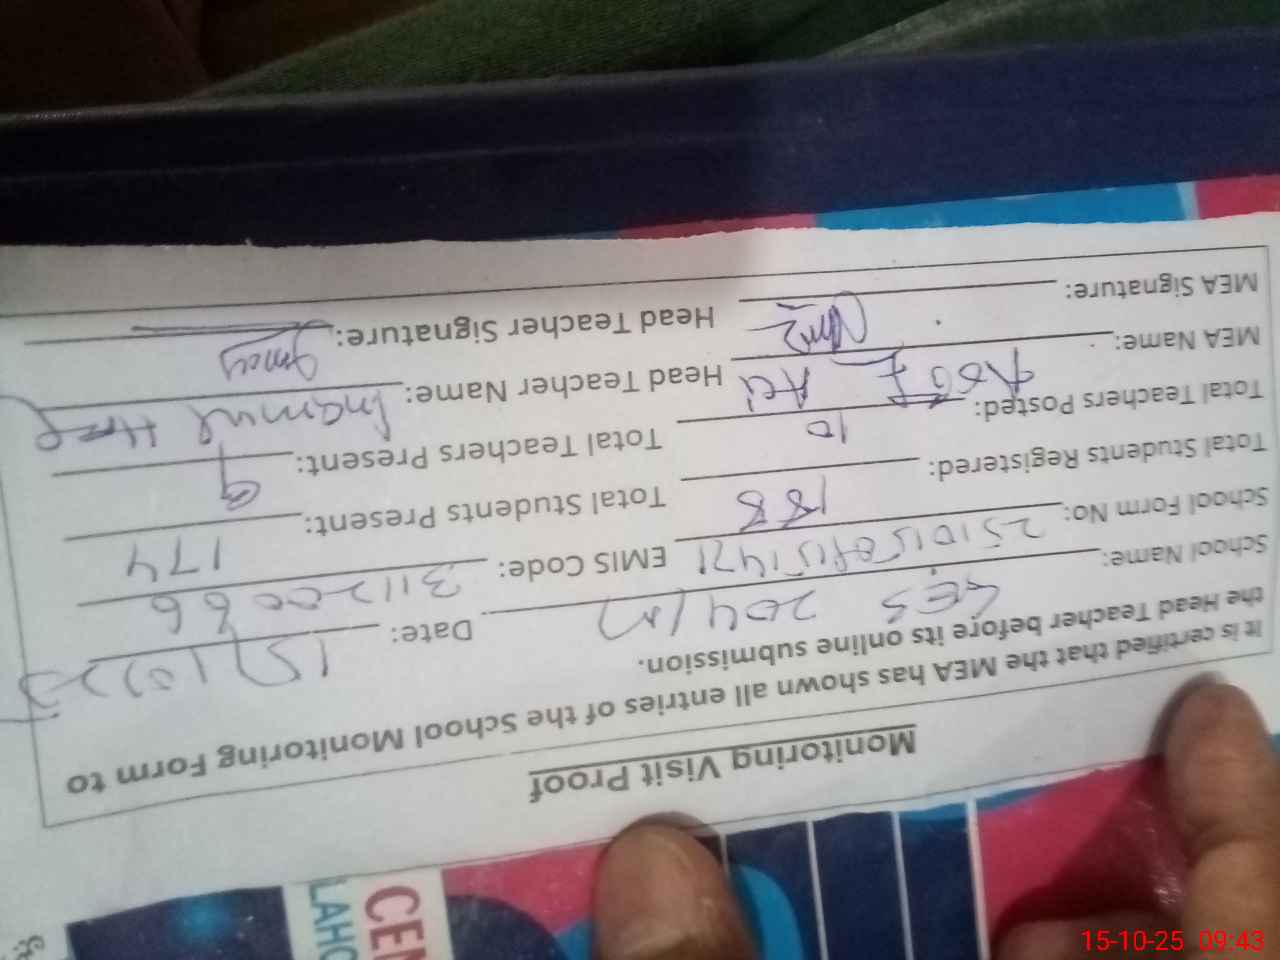 Monitoring Visit Proof
It is certified that the MEA has shown all entries of the School Monitoring Form to
the Head Teacher before its online submission.
School Name: GES 204/M Date: 15/10/25
School Form No: EMIS Code: 31120066
Total Students Registered: 188 Total Students Present: 174
Total Teachers Posted: 10 Total Teachers Present: 9
MEA Name: Head Teacher Name: Inamul Haq
MEA Signature: Head Teacher Signature:
CEN
LAHO
15-10-25 09:43